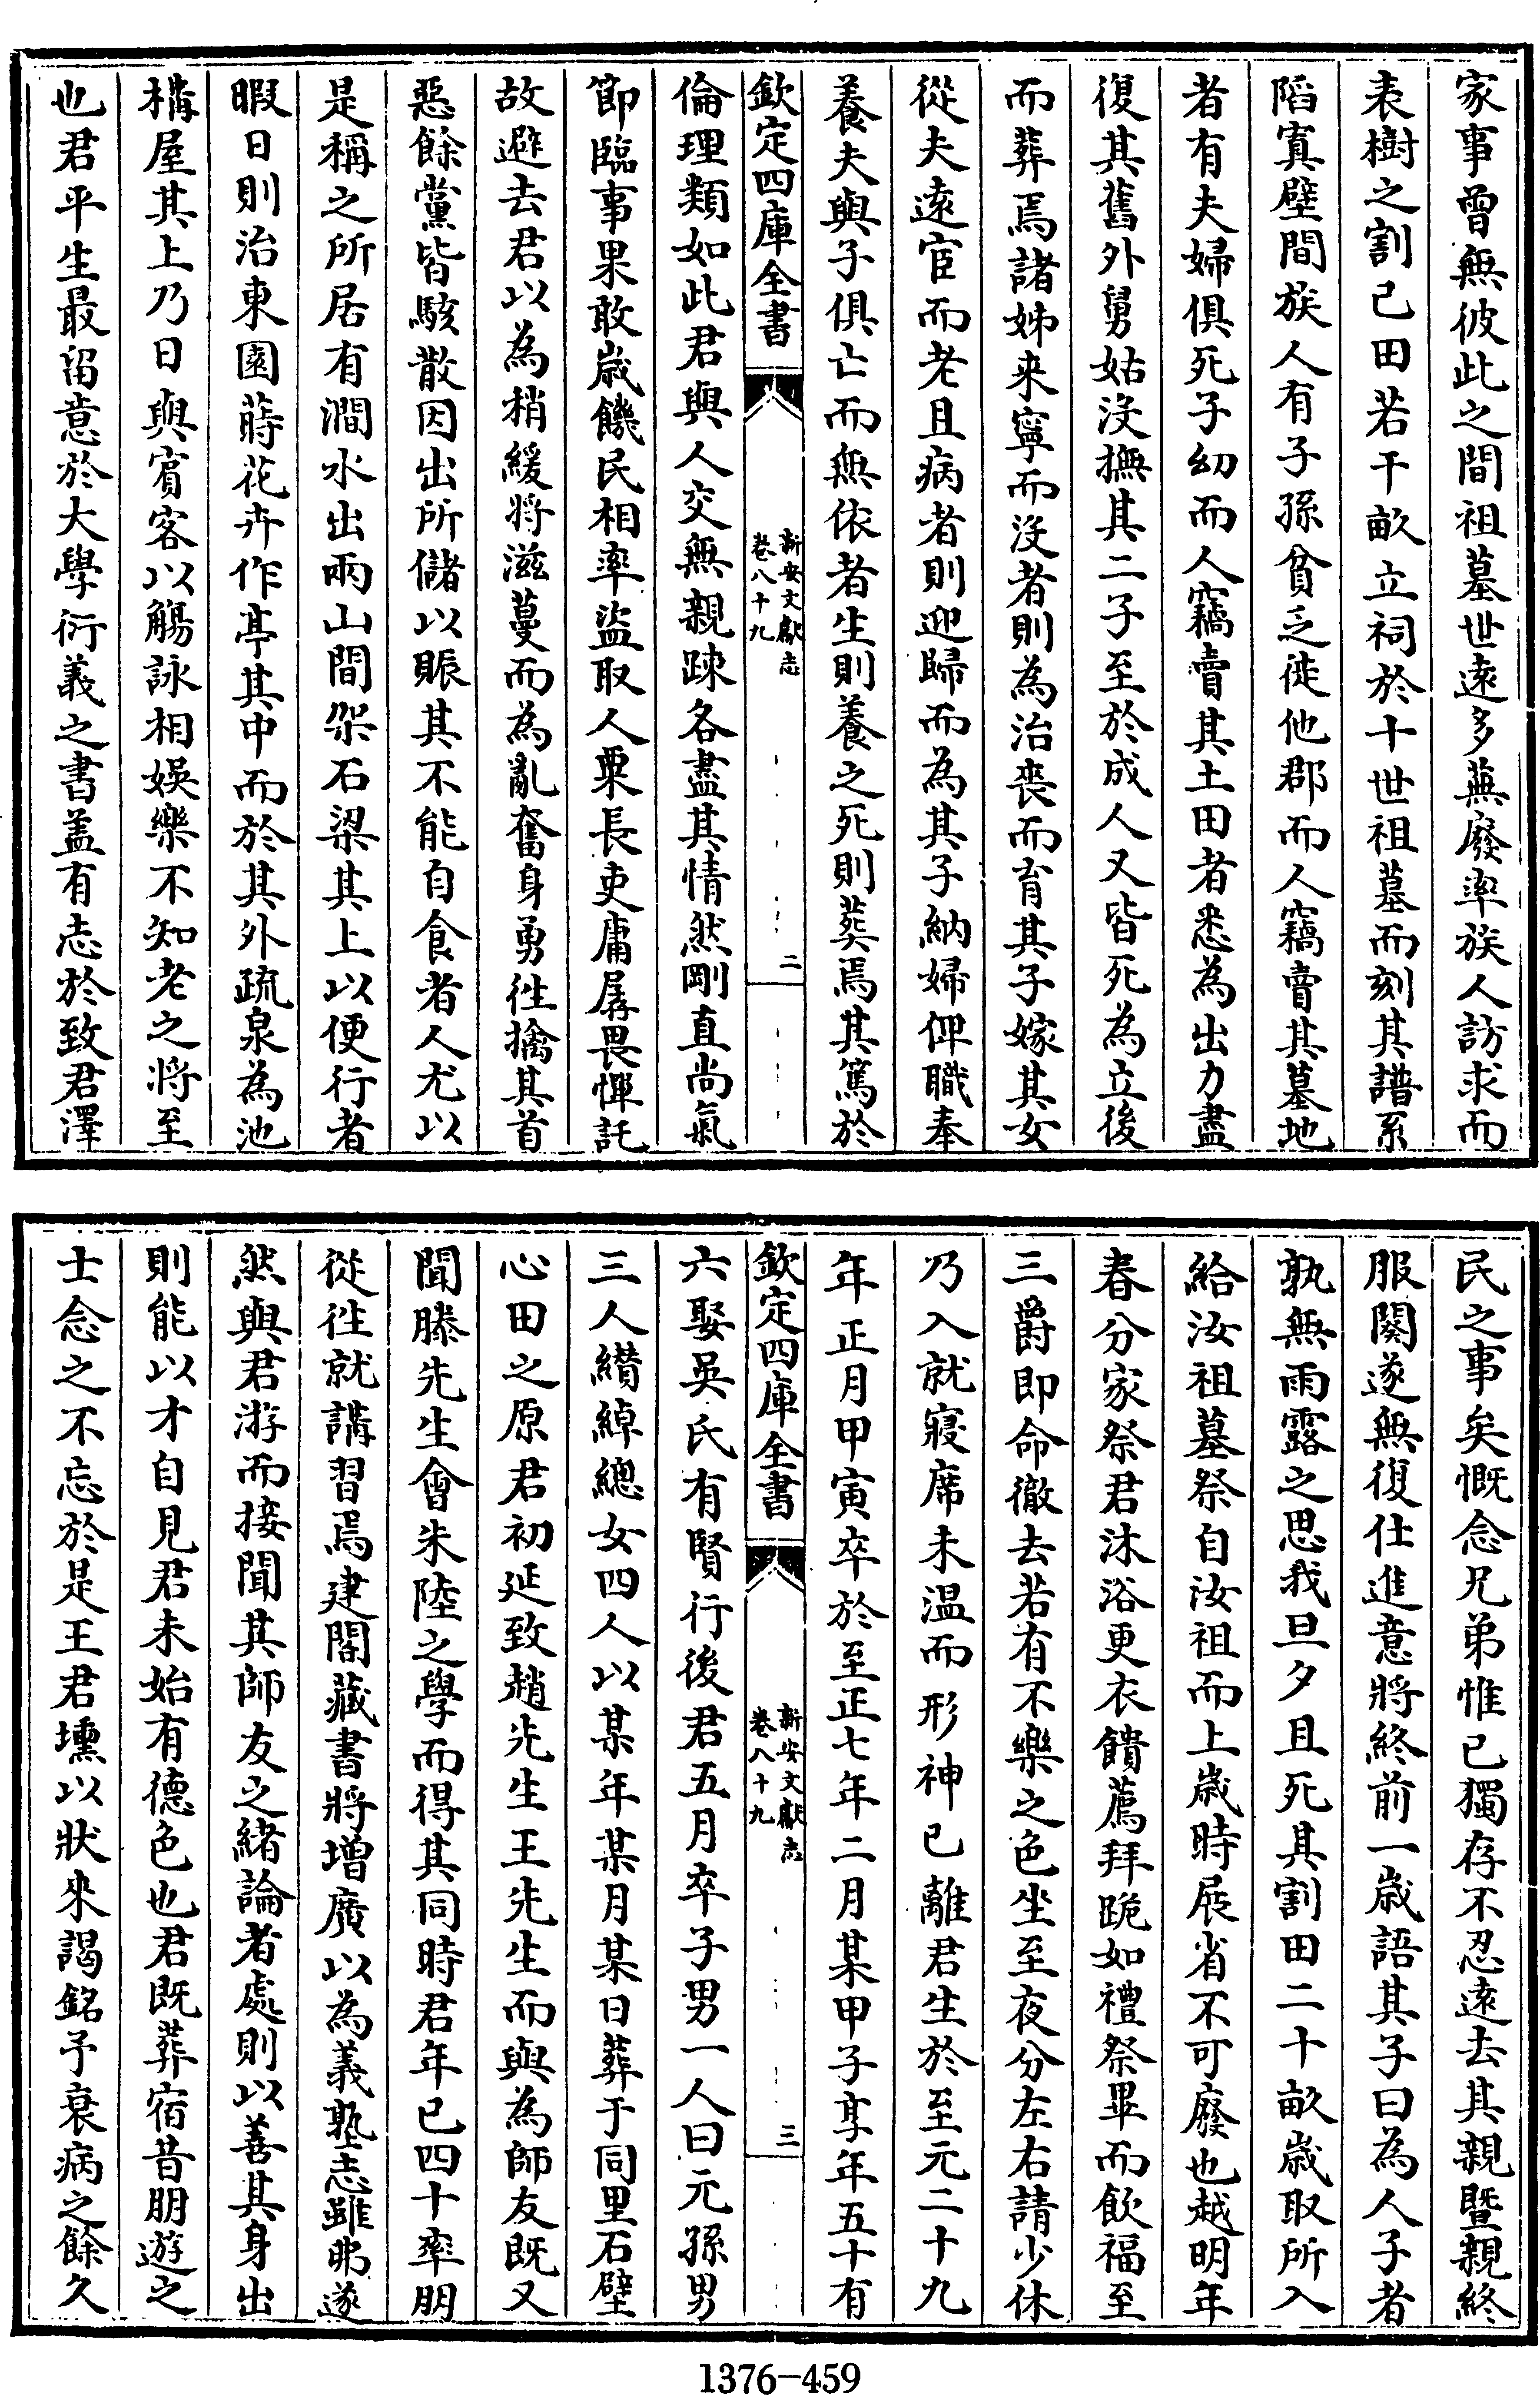 家事曾無彼此之間祖墓世遠多蕪廢率族人訪求而
表樹之割己田若干畝立祠於十世祖墓而刻其譜系
陷寘壁間族人有子孫貧乏徙他郡而人竊賣其墓地
者有夫婦俱死子幼而人竊賣其土田者悉為出力盡
復其舊外舅姑沒撫其二子至於成人又皆死為立後
而葬焉諸姊来寧而沒者則為治喪而育其子嫁其女
從夫遠宦而老且病者則迎歸而為其子納婦俾職奉
養夫與子俱亡而無依者生則養之死則葬焉其篤於
欽定四庫全書
新安文獻志
卷八十九
二
倫理類如此君與人交無親疎各盡其情然剛直尚氣
節臨事果敢歲饑民相率盜取人粟長吏庸孱畏憚託
故避去君以為稍緩将滋蔓而為亂奮身勇徃擒其首
惡餘黨皆駭散因出所儲以賑其不能自食者人尤以
是稱之所居有澗水出兩山間架石梁其上以便行者
暇日則治東園蒔花卉作亭其中而於其外疏泉為池
構屋其上乃日與賓客以觴詠相娛樂不知老之将至
也君平生最留意於大學衍義之書盖有志於致君澤
民之事矣慨念兄弟惟已獨存不忍遠去其親暨親終
服闋遂無復仕進意將終前一歲語其子曰為人子者
孰無雨露之思我旦夕且死其割田二十畝歲取所入
給汝祖墓祭自汝祖而上歲時展省不可廢也越明年
春分家祭君沐浴更衣饋薦拜跪如禮祭畢而飲福至
三爵即命徹去若有不樂之色坐至夜分左右請少休
乃入就寢席未温而形神已離君生於至元二十九
年正月甲寅卒於至正七年二月某甲子享年五十有
欽定四庫全書
新安文獻志
卷八十九
三
六娶吳氏有賢行後君五月卒子男一人曰元孫男
三人纘綽總女四人以某年某月某日葬于同里石壁
心田之原君初延致趙先生王先生而與為師友既又
聞滕先生會朱陸之學而得其同時君年已四十率朋
從徃就講習焉建閣藏書將增廣以為義塾志雖弗遂
然與君游而接聞其師友之緒論者處則以善其身出
則能以才自見君未始有德色也君既葬宿昔朋遊之
士念之不忘於是王君壎以狀來謁銘予衰病之餘久
1376-459